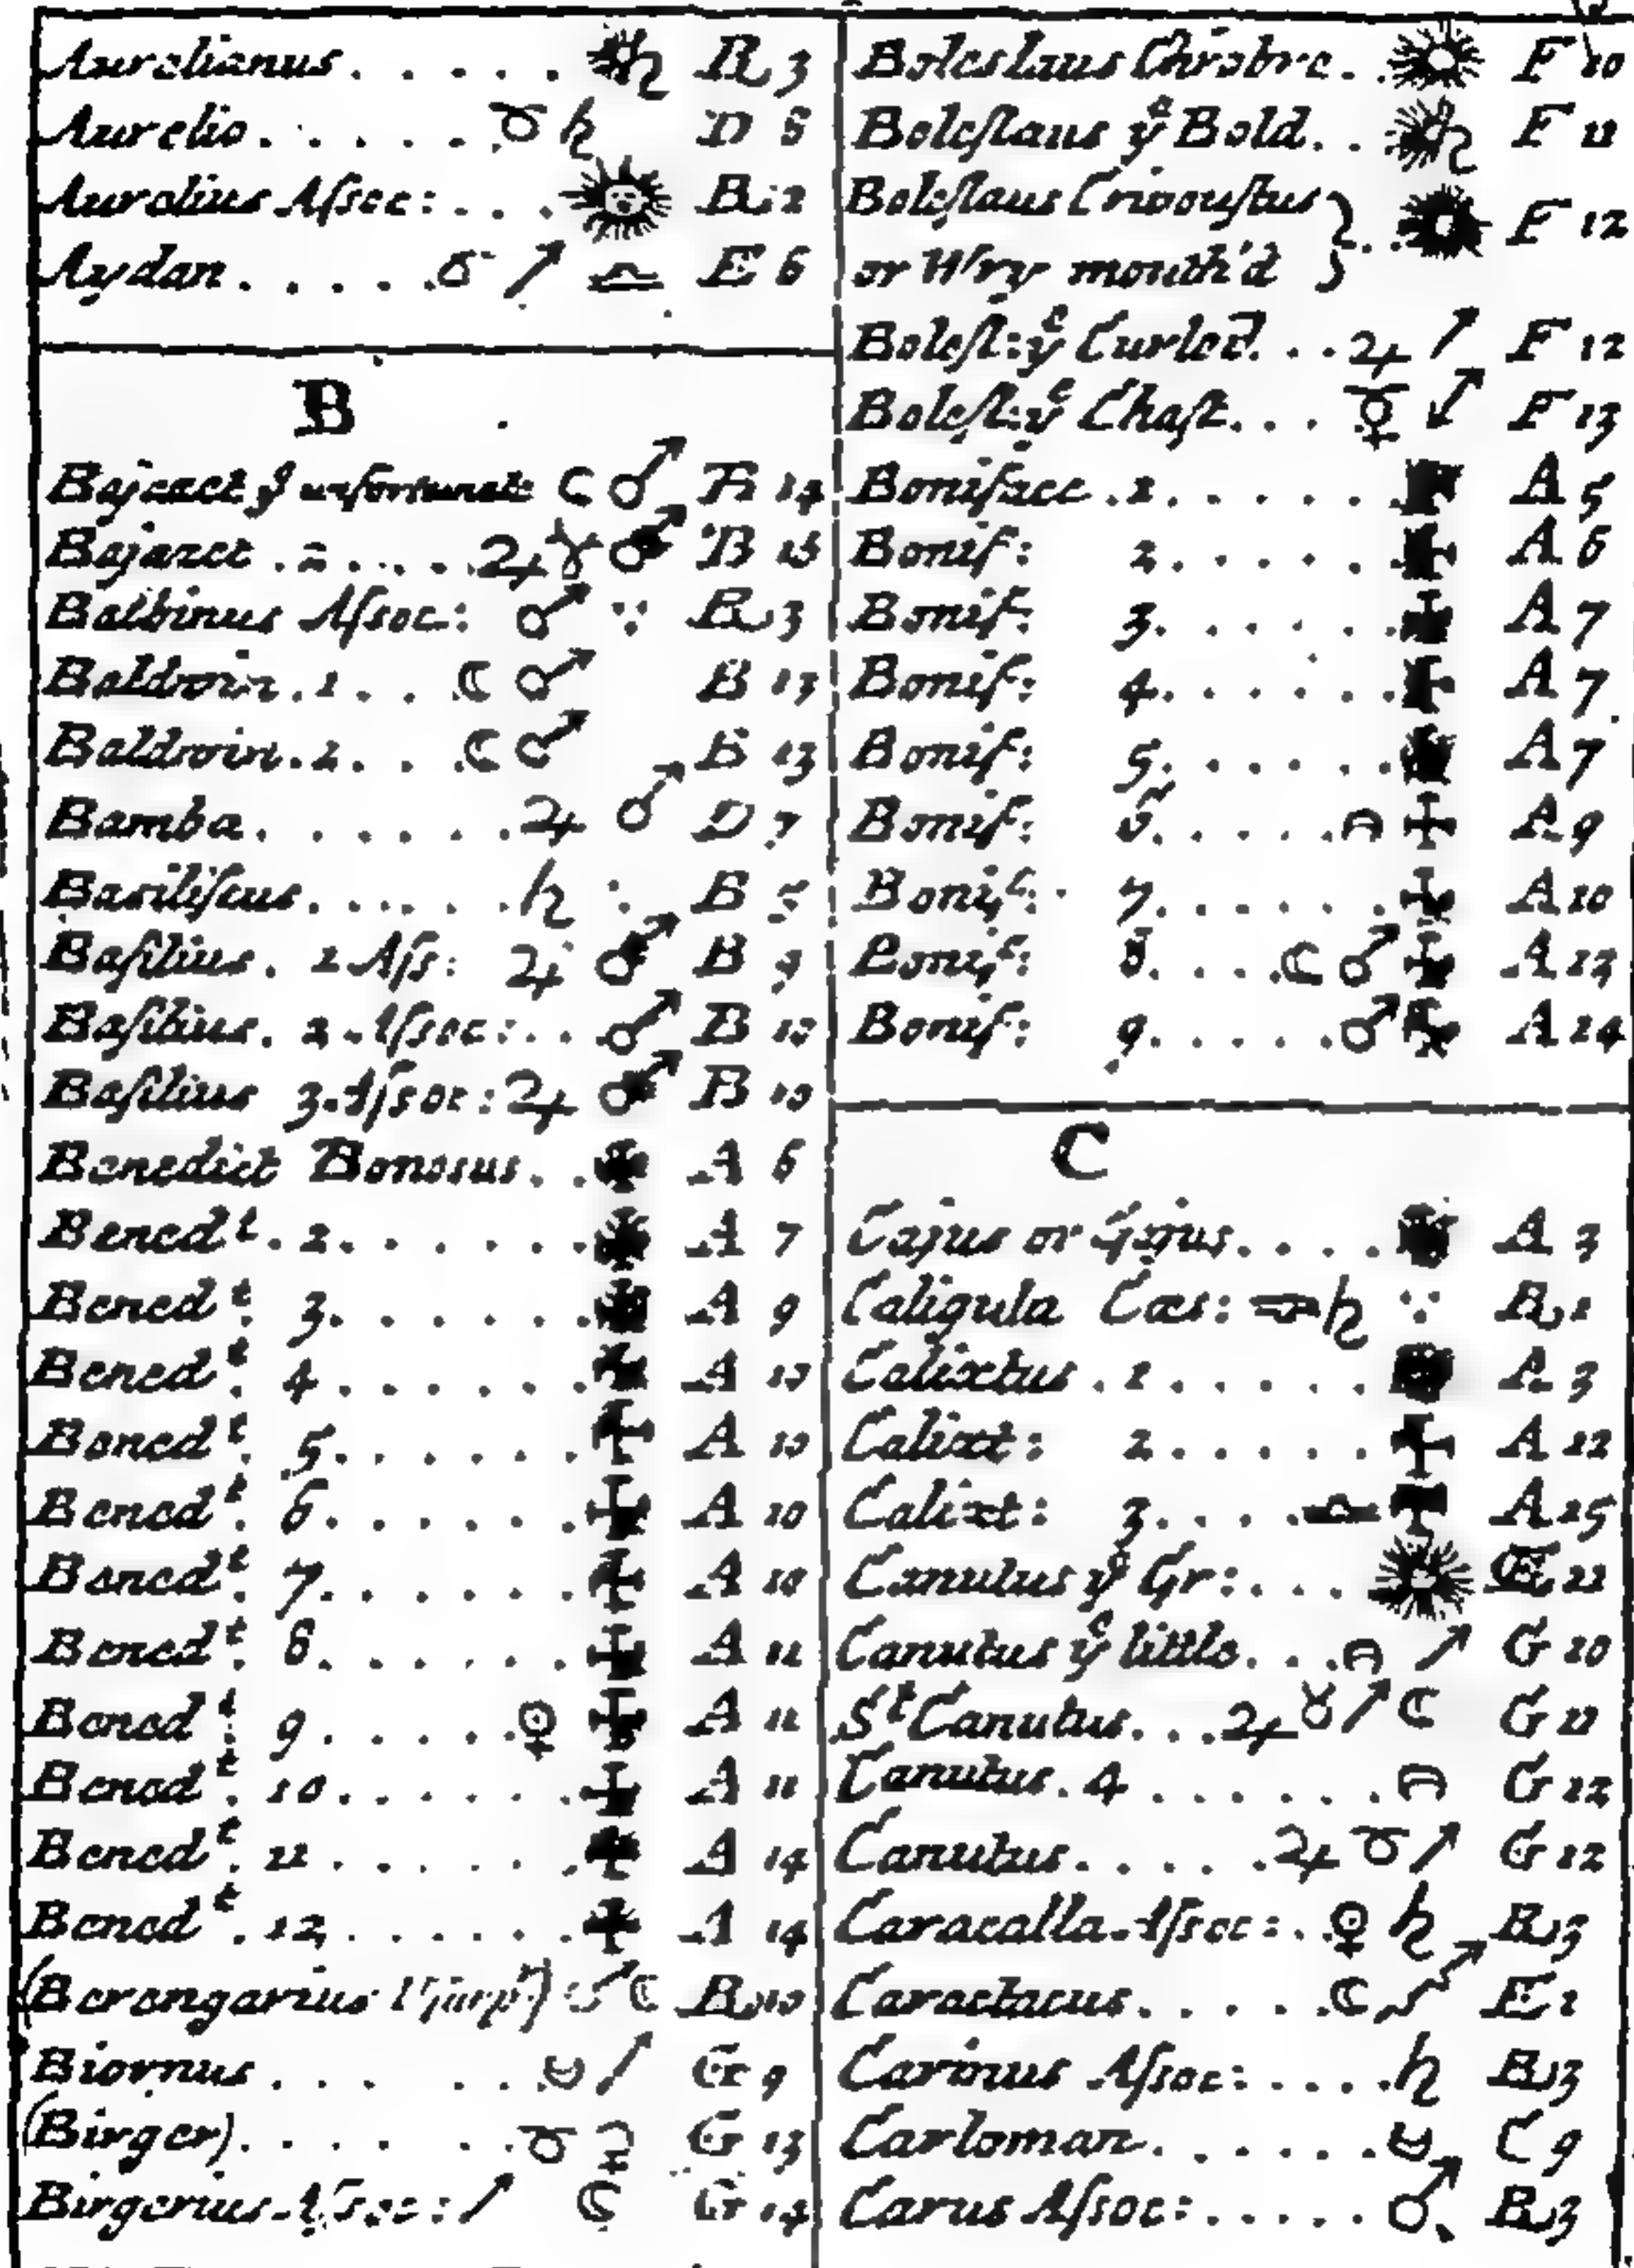 Aurelianus . . . . . ☀♄ R 3
Aurelio . . . . . ♉ ♄ D 8
Aurelius Aſsoc: . . . ☀ R 2
Aydan . . . . . ↗ ♎ E 6
B
Bajazet yͤ unfortunate ☾ ♂ B 14
Bajazet . 2 . . . . ♃ ♉ ♂ B 15
Balbinus Aſsoc: ♂ ∵ R 3
Baldwin . 1 . . ☾ ♂ B 13
Baldwin . 2 . . . ☾ ♂ B 13
Bamba . . . . . . ♃ ♂ D 7
Basiliſcus . . . . . . ♄ : B 5
Baſilius . 1 Aſs: ♃ ♂ B 9
Baſilius . 2 Aſsoc: . . ♂ B 10
Baſilius 3. Aſsoc: ♃ ♂ B 10
Benedict Bonosus . . ✠ A 6
Benedᵗ . 2 . . . . . . ✠ A 7
Benedᵗ . 3 . . . . . . ✠ A 9
Benedᵗ . 4 . . . . . . ✠ A 10
Benedᵗ . 5 . . . . . . ✠ A 10
Benedᵗ . 6 . . . . . . ✠ A 10
Benedᵗ . 7 . . . . . . ✠ A 10
Benedᵗ . 8 . . . . . . ✠ A 11
Benedᵗ . 9 . . . . ♀ ✠ A 11
Benedᵗ . 10 . . . . . . ✠ A 11
Benedᵗ . 11 . . . . . ✠ A 14
Benedᵗ . 12 . . . . . ✠ A 14
(Berengarius Uſurpʳ) : ☾ R 10
Biornus . . . . . . ♉ ↗ G 9
(Birger) . . . . . . ♉ G 13
Birgerius Aſsoc: ↗ ☾ G 14
Boleslaus Chrobre . . ☀ F 10
Boleſlaus yͤ Bold . . ☀♄ F 11
Boleſlaus Crivouſtus } . . ☀ F 12
or Wry mouth'd
Boleſl: yͤ Curled . . . ♃ ↗ F 12
Boleſl: yͤ Chaſt . . . F 13
Boniface . 1 . . . . . . ✠ A 5
Bonif: 2 . . . . . ✠ A 6
Bonif: 3 . . . . . . ✠ A 7
Bonif: 4 . . . . . . ✠ A 7
Bonif: 5 . . . . . . ✠ A 7
Bonif: 6 . . . . . ✠ A 9
Bonif: 7 . . . . . . ✠ A 10
Bonif: 8 . . . . ☾ ♂ ✠ A 13
Bonif: 9 . . . . . ♂ ✠ A 14
C
Cajus or Gajus . . . . ✠ A 3
Caligula Cæs: ♄ ∵ R 1
Calixtus . 1 . . . . . ✠ A 3
Calixt: 2 . . . . . ✠ A 12
Calixt: 3 . . . . ♎ ✠ A 15
Canutus yͤ Gr: . . . ☀ E 11
Canutus yͤ little . . . ↗ G 10
Sᵗ Canutus . . . ♃ ♉ ↗ ☾ G 11
Canutus . 4 . . . . . . G 12
Canutus . . . . . ♃ ♉ ↗ G 12
Caracalla Aſsoc: . . ♀ ♄ R 3
Caractacus . . . . . ☾ ↗ E 1
Carinus Aſsoc: . . . . ♄ R 3
Carloman . . . . . . ♉ C 9
Carus Aſsoc: . . . . . ♂ R 3